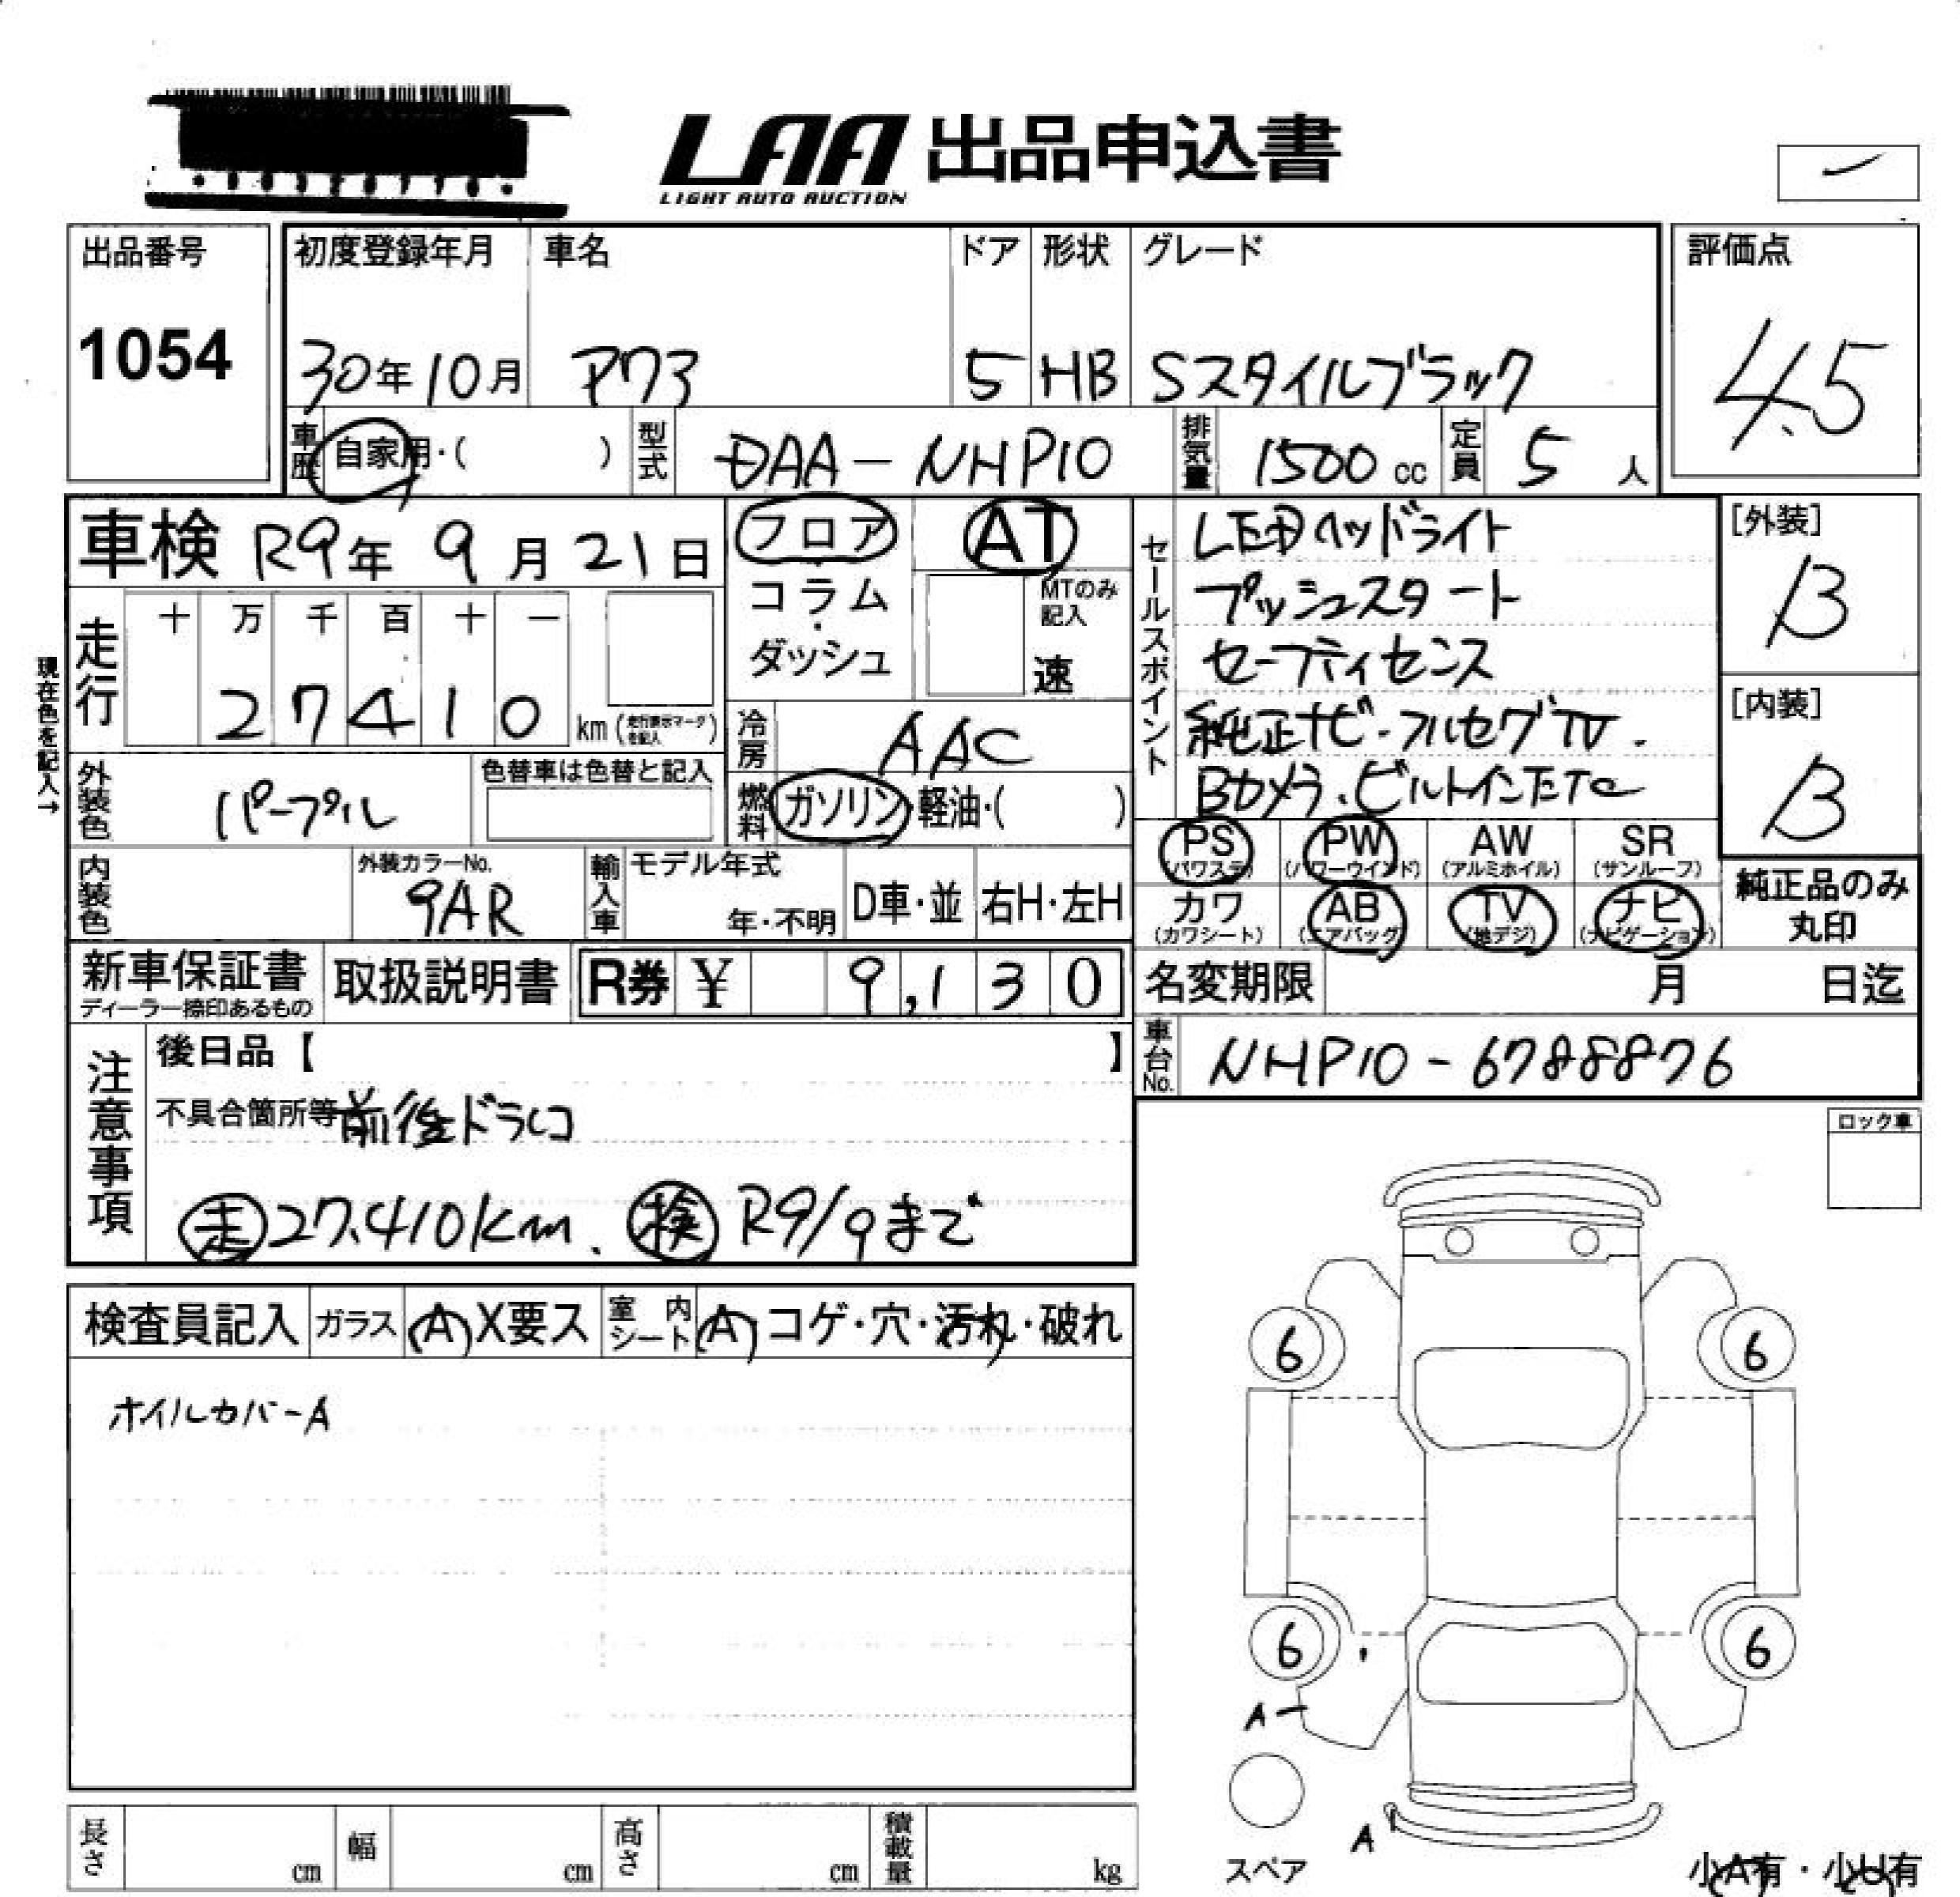 LAA 出品申込書
LIGHT AUTO AUCTION
出品番号
1054
初度登録年月 車名 ドア 形状 グレード
30年10月 アクア 5 HB Sスタイルブラック
評価点
4.5
車歴 自家用・( ) 型式 DAA-NHP10 排気量 1500cc 定員 5人
車検 R9年 9月 21日
フロア AT
コラム・
ダッシュ
MTのみ記入
速
走行 十 万 千 百 十 一
2 7 4 1 0 km (走行表示マークを記入)
現在色を記入→
冷房 AAC
外装色 パープル 色替車は色替と記入
燃料 ガソリン・軽油・( )
セールスポイント
LEDヘッドライト
プッシュスタート
セーフティセンス
純正ナビ・フルセグTV.
Bカメラ.ビルトインETC
[外装]
B
[内装]
B
PS (パワステ) PW (パワーウインド) AW (アルミホイル) SR (サンルーフ)
カワ (カワシート) AB (エアバッグ) TV (地デジ) ナビ (ナビゲーション)
純正品のみ
丸印
内装色 外装カラーNo. 9AR 輸入車 モデル年式 年・不明 D車・並 右H・左H
新車保証書 ディーラー捺印あるもの 取扱説明書 R券 ¥ 9,130
名変期限 月 日迄
車台No. NHP10-6788876
注意事項
後日品【 】
不具合箇所等 前後ドラレコ
走 27.410km. 検 R9/9まで
ロック車
検査員記入 ガラス A X要ス 室内シート A コゲ・穴・汚れ・破れ
ホイルカバーA
6 6
6 6
A
A
スペア
小A有・小U有
長さ cm 幅 cm 高さ cm 積載量 kg